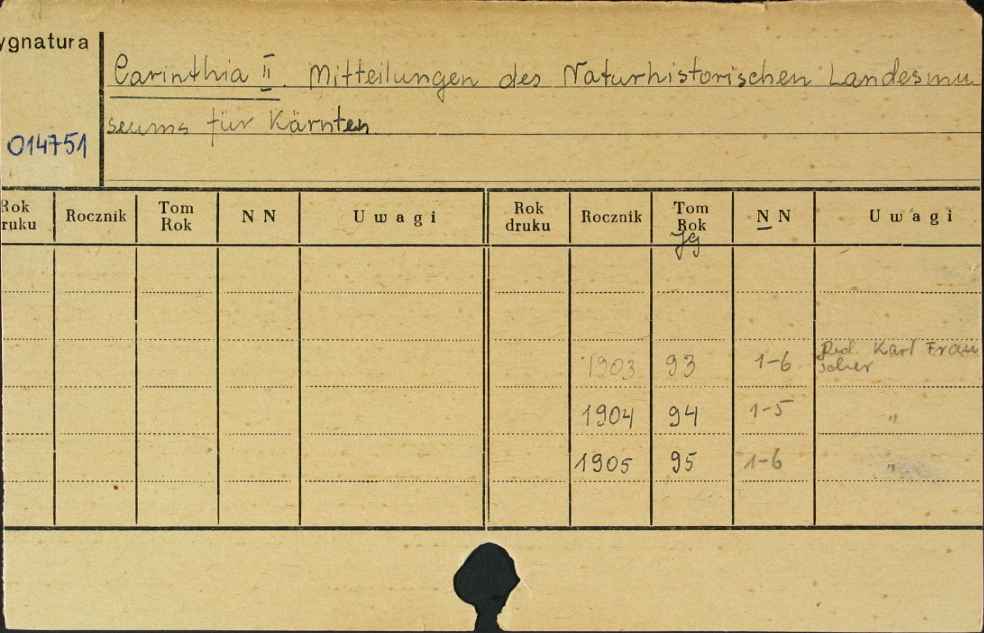 ygnatura
Carinthia II. Mitteilungen des Naturhistorischen Landesmu
seums für Kärnten
014751
Rok druku Rocznik Tom Rok N N Uwagi Rok druku Rocznik Tom Rok N N Uwagi
Jg
1903 93 1-6 Red. Karl Frau
scher
1904 94 1-5 "
1905 95 1-6 "